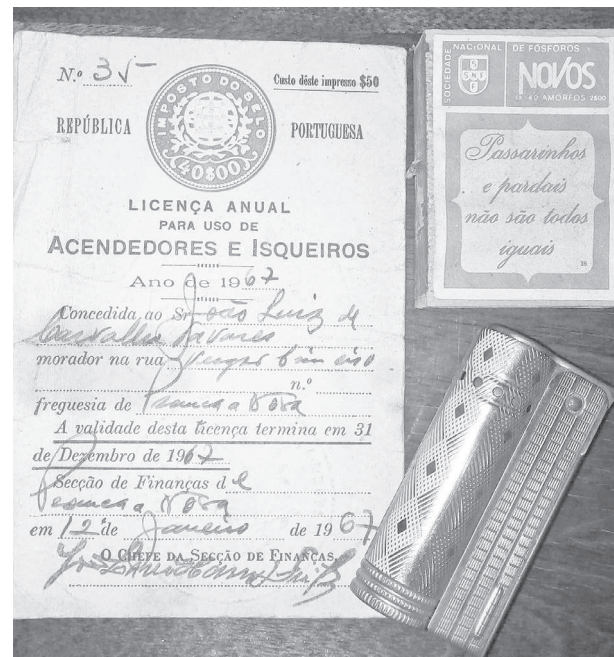 N.º 35
Custo dêste impresso $50
IMPOSTO DO SELO
40$00
REPÚBLICA PORTUGUESA
LICENÇA ANUAL
PARA USO DE
ACENDEDORES E ISQUEIROS
Ano de 1967
Concedida ao Sr. João Luiz de
Carvalho Tavares
morador na rua
n.º
freguesia de
A validade desta licença termina em 31
de Dezembro de 1967
Secção de Finanças de
em 12 de Janeiro de 1967
O CHEFE DA SECÇÃO DE FINANÇAS,
SOCIEDADE NACIONAL DE FÓSFOROS
SNF
NOVOS
40 AMORFOS
Passarinhos
e pardais
não são todos
iguais